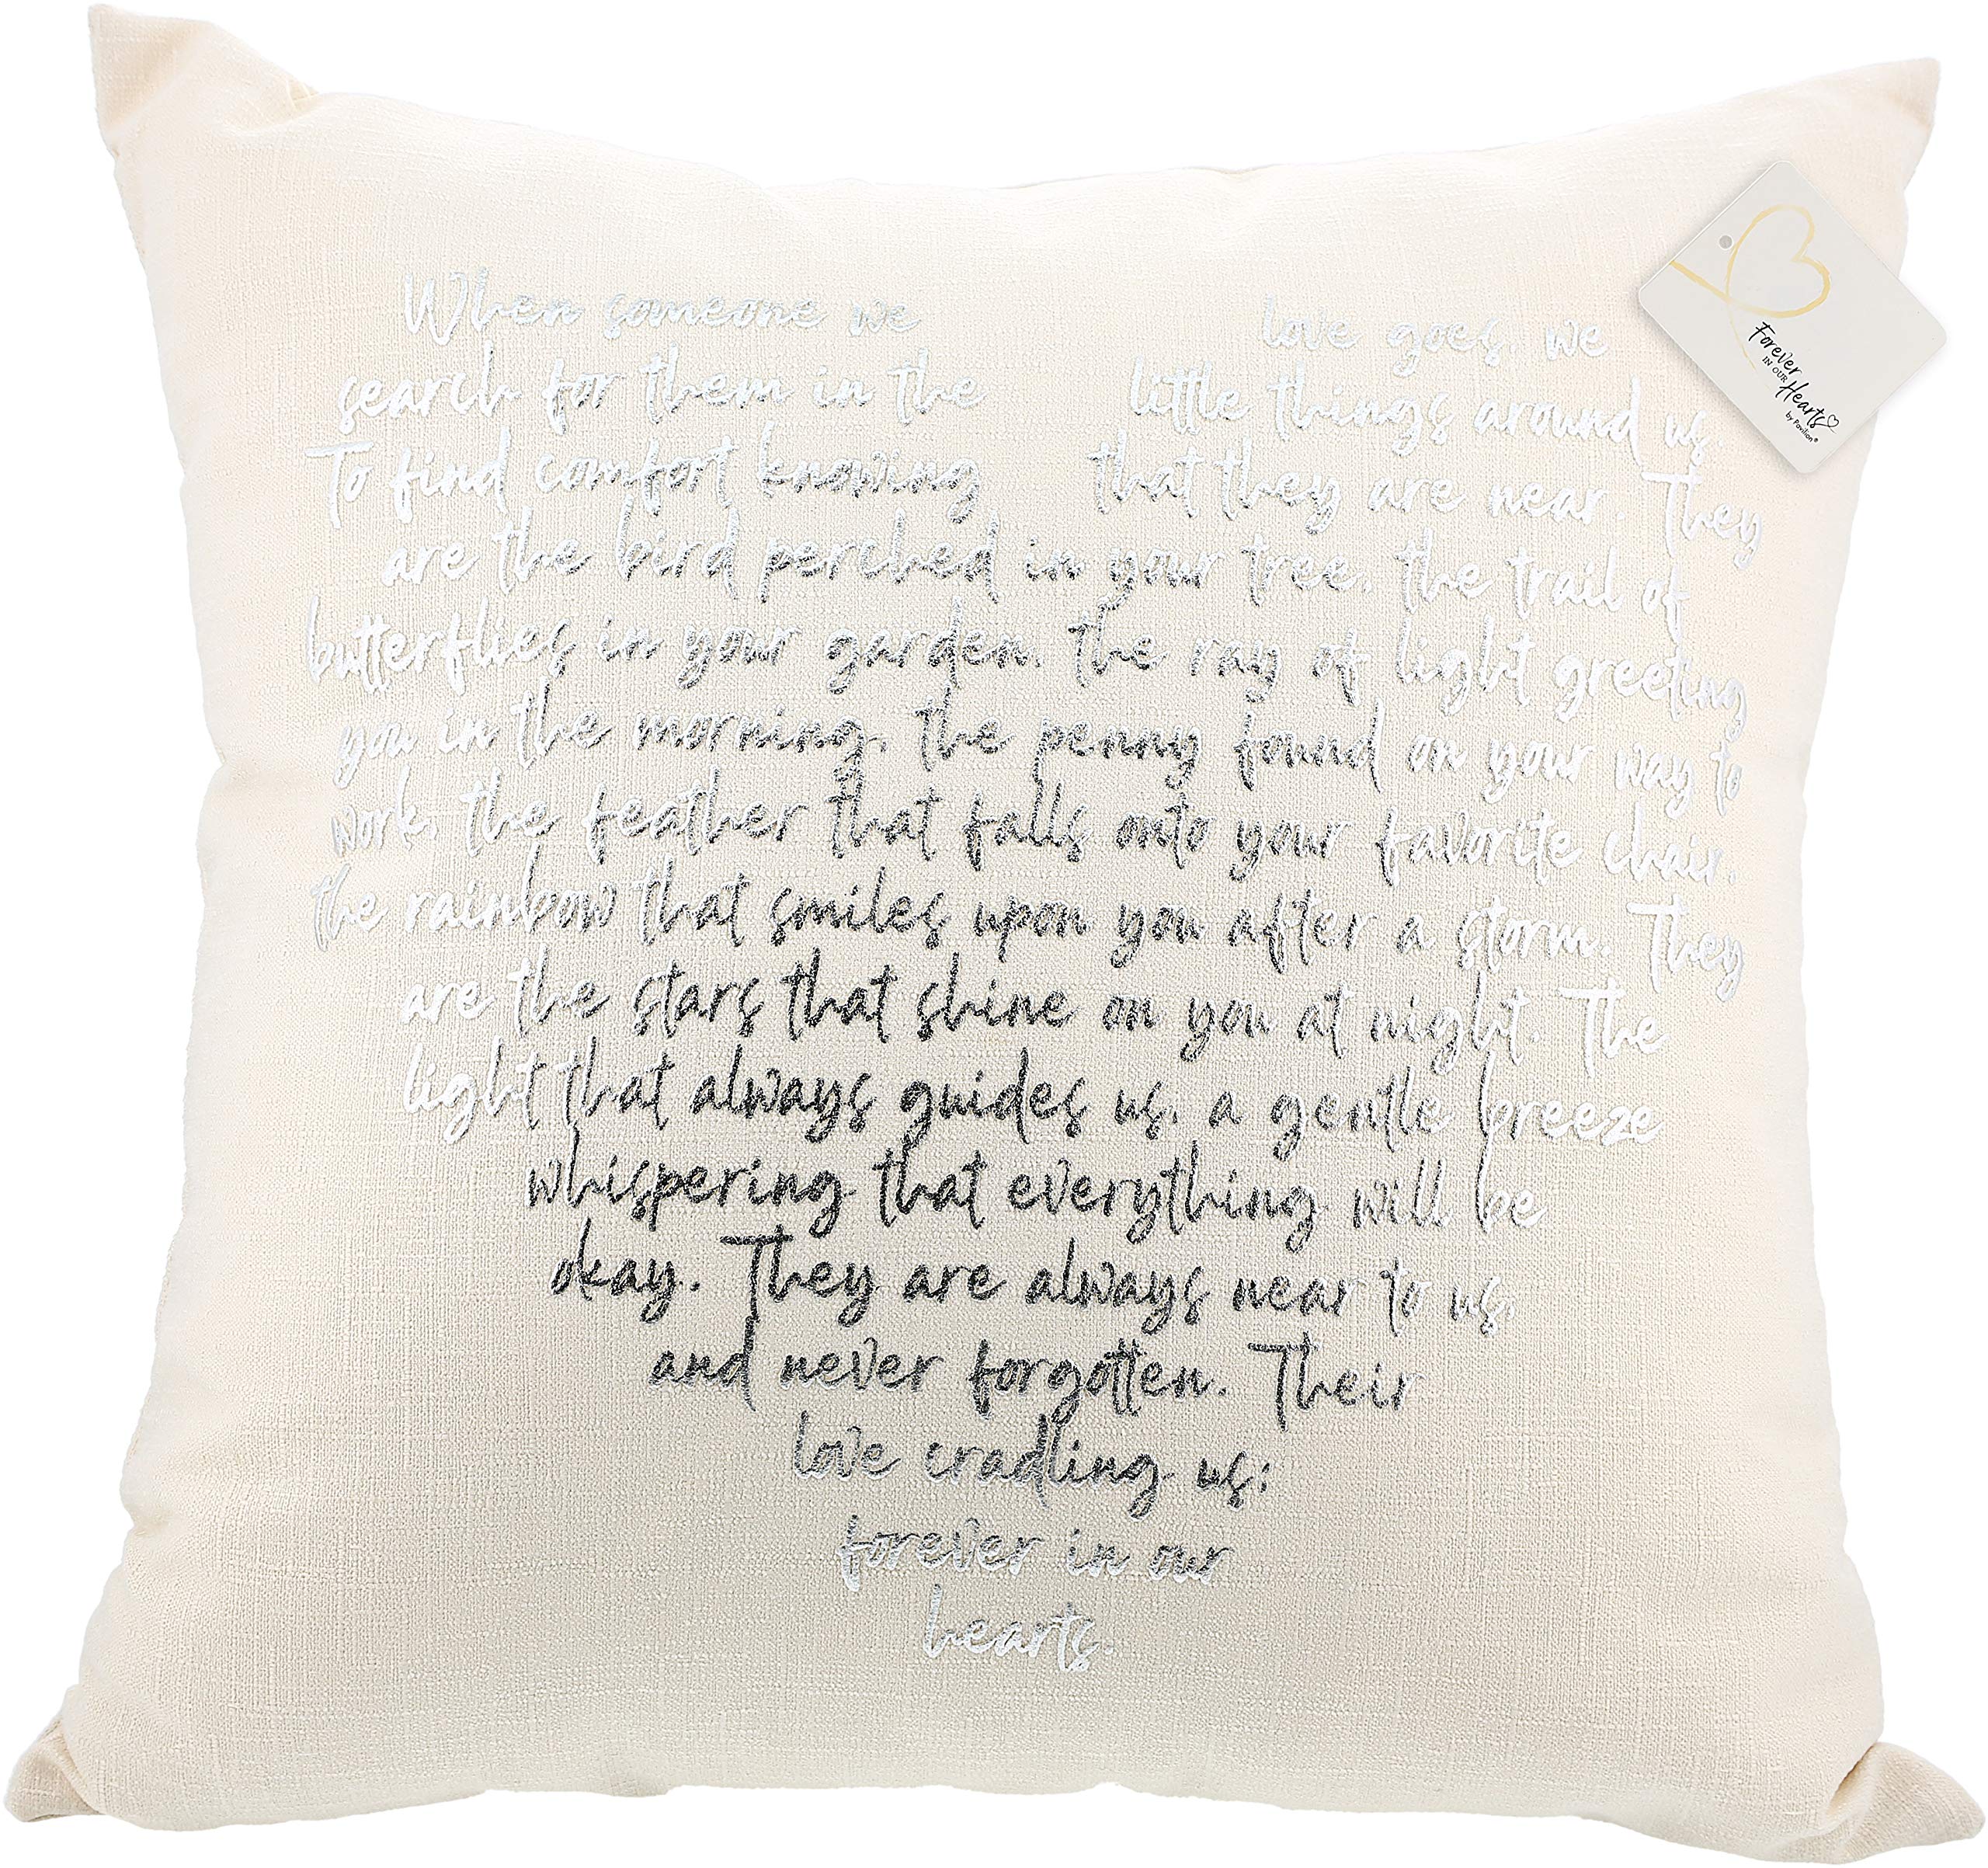 When someone we love goes, we
search for them in the little things around us
To find comfort knowing that they are near. They
are the bird perched in your tree, the trail of
butterflies in your garden, the ray of light greeting
you in the morning, the penny found on your way to
work, the feather that falls onto your favorite chair,
the rainbow that smiles upon you after a storm. They
are the stars that shine on you at night. The
light that always guides us, a gentle breeze
whispering that everything will be
okay. They are always near to us,
and never forgotten. Their
love cradling us;
forever in our
hearts.
Forever
IN OUR
Hearts
by Pavilion®